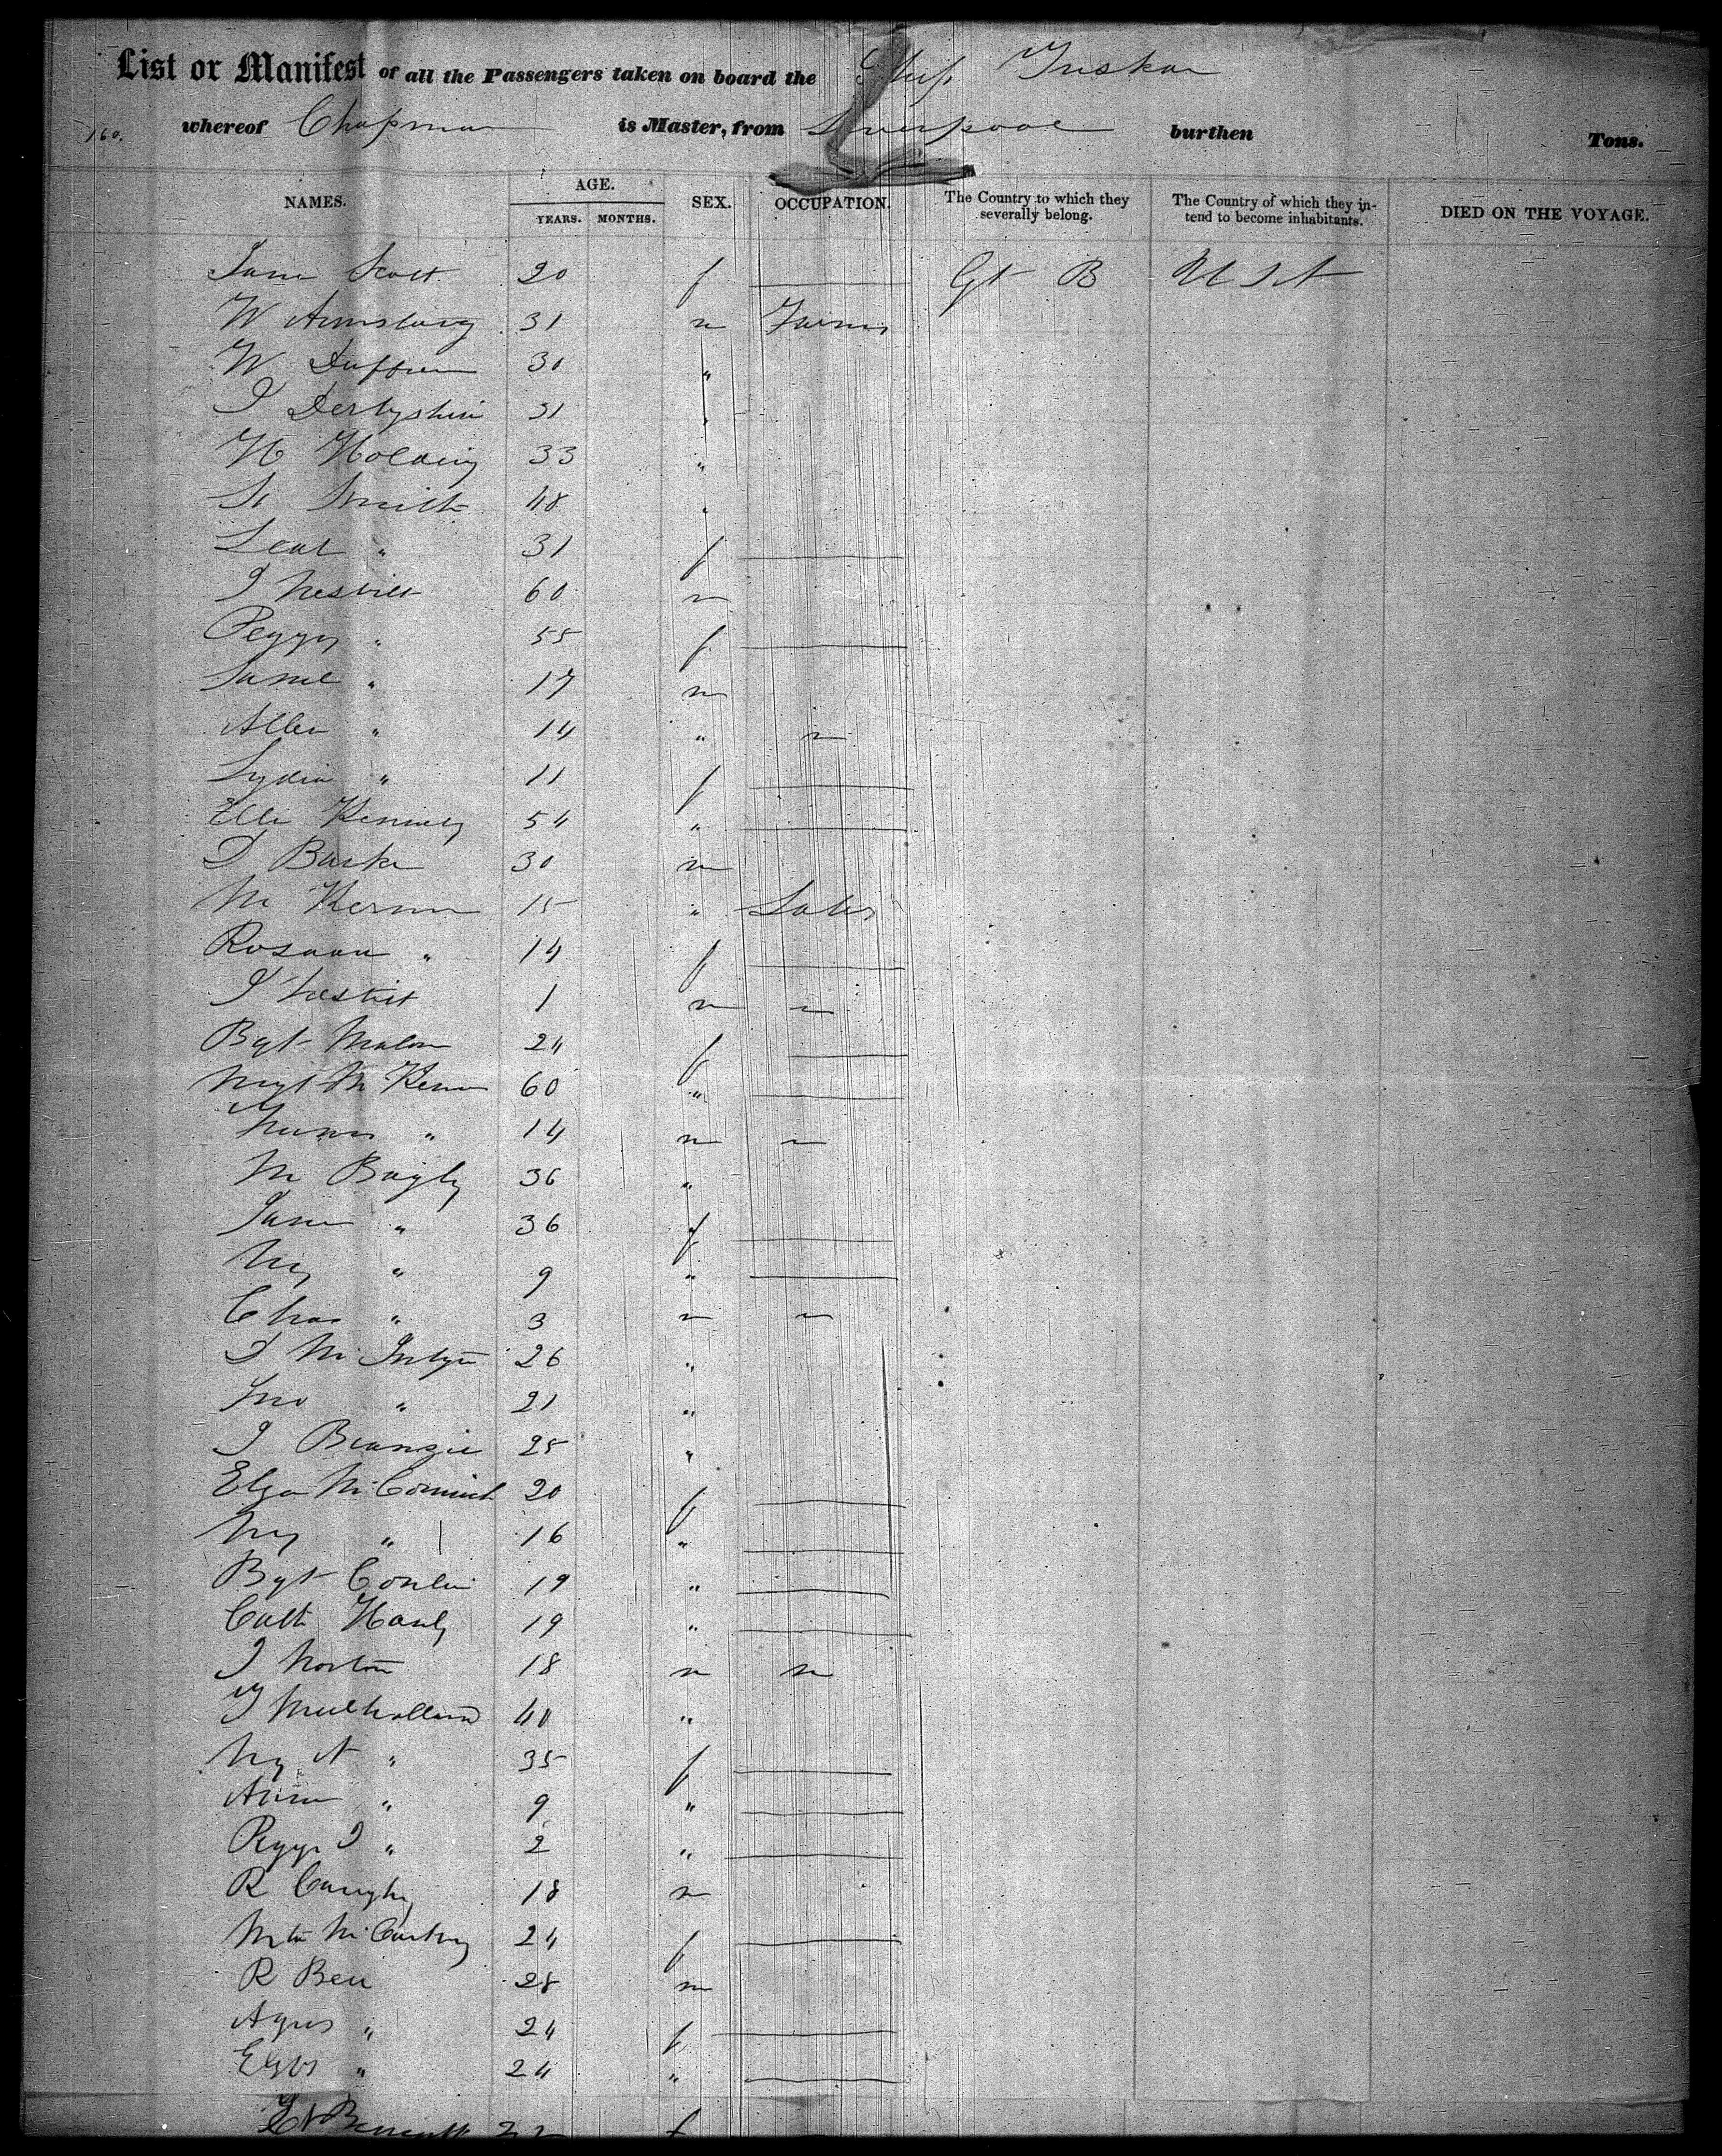 List or Manifest of all the Passengers taken on board the Ship Tuskar
160. whereof Chapman is Master, from Liverpool burthen Tons.
NAMES. AGE. YEARS. MONTHS. SEX. OCCUPATION. The Country to which they severally belong. The Country of which they intend to become inhabitants. DIED ON THE VOYAGE.
Jane Scott 20 f Gt B U S A
W Armstrong 31 m Farmer
W 30 "
J Derbyshire 31 "
H Holding 33 "
S Smith 48 "
Leah " 31 f
J Nesbitt 60 m
Peggy " 55 f
Saml " 17 m
Allen " 14 " "
Lydia " 11 f
Ellen Kennedy 54 "
J Barker 30 m
M Kernan 15 " Labr
Rosanna " 14 f
J Nesbit 1 m
Bgt Malone 24 f
Mgt McKenna 60 "
" 14 m
M Bagly 36 "
Jane " 36 f
My " 9 "
Chas " 3 m
J McIntyre 26 "
Jno " 21 "
J 25 "
Elza McCormick 20 f
My " 16 "
Bgt Conlin 19 "
Cath Hanly 19 "
J Norton 18 m
J Mulholland 40 "
My A " 35 f
Ann " 9 "
Peggy J " 2 "
R 18 m
McCarthy 24 f
R Bell 28 m
Agnes " 24 f
" 24 "
Bennett 22 f